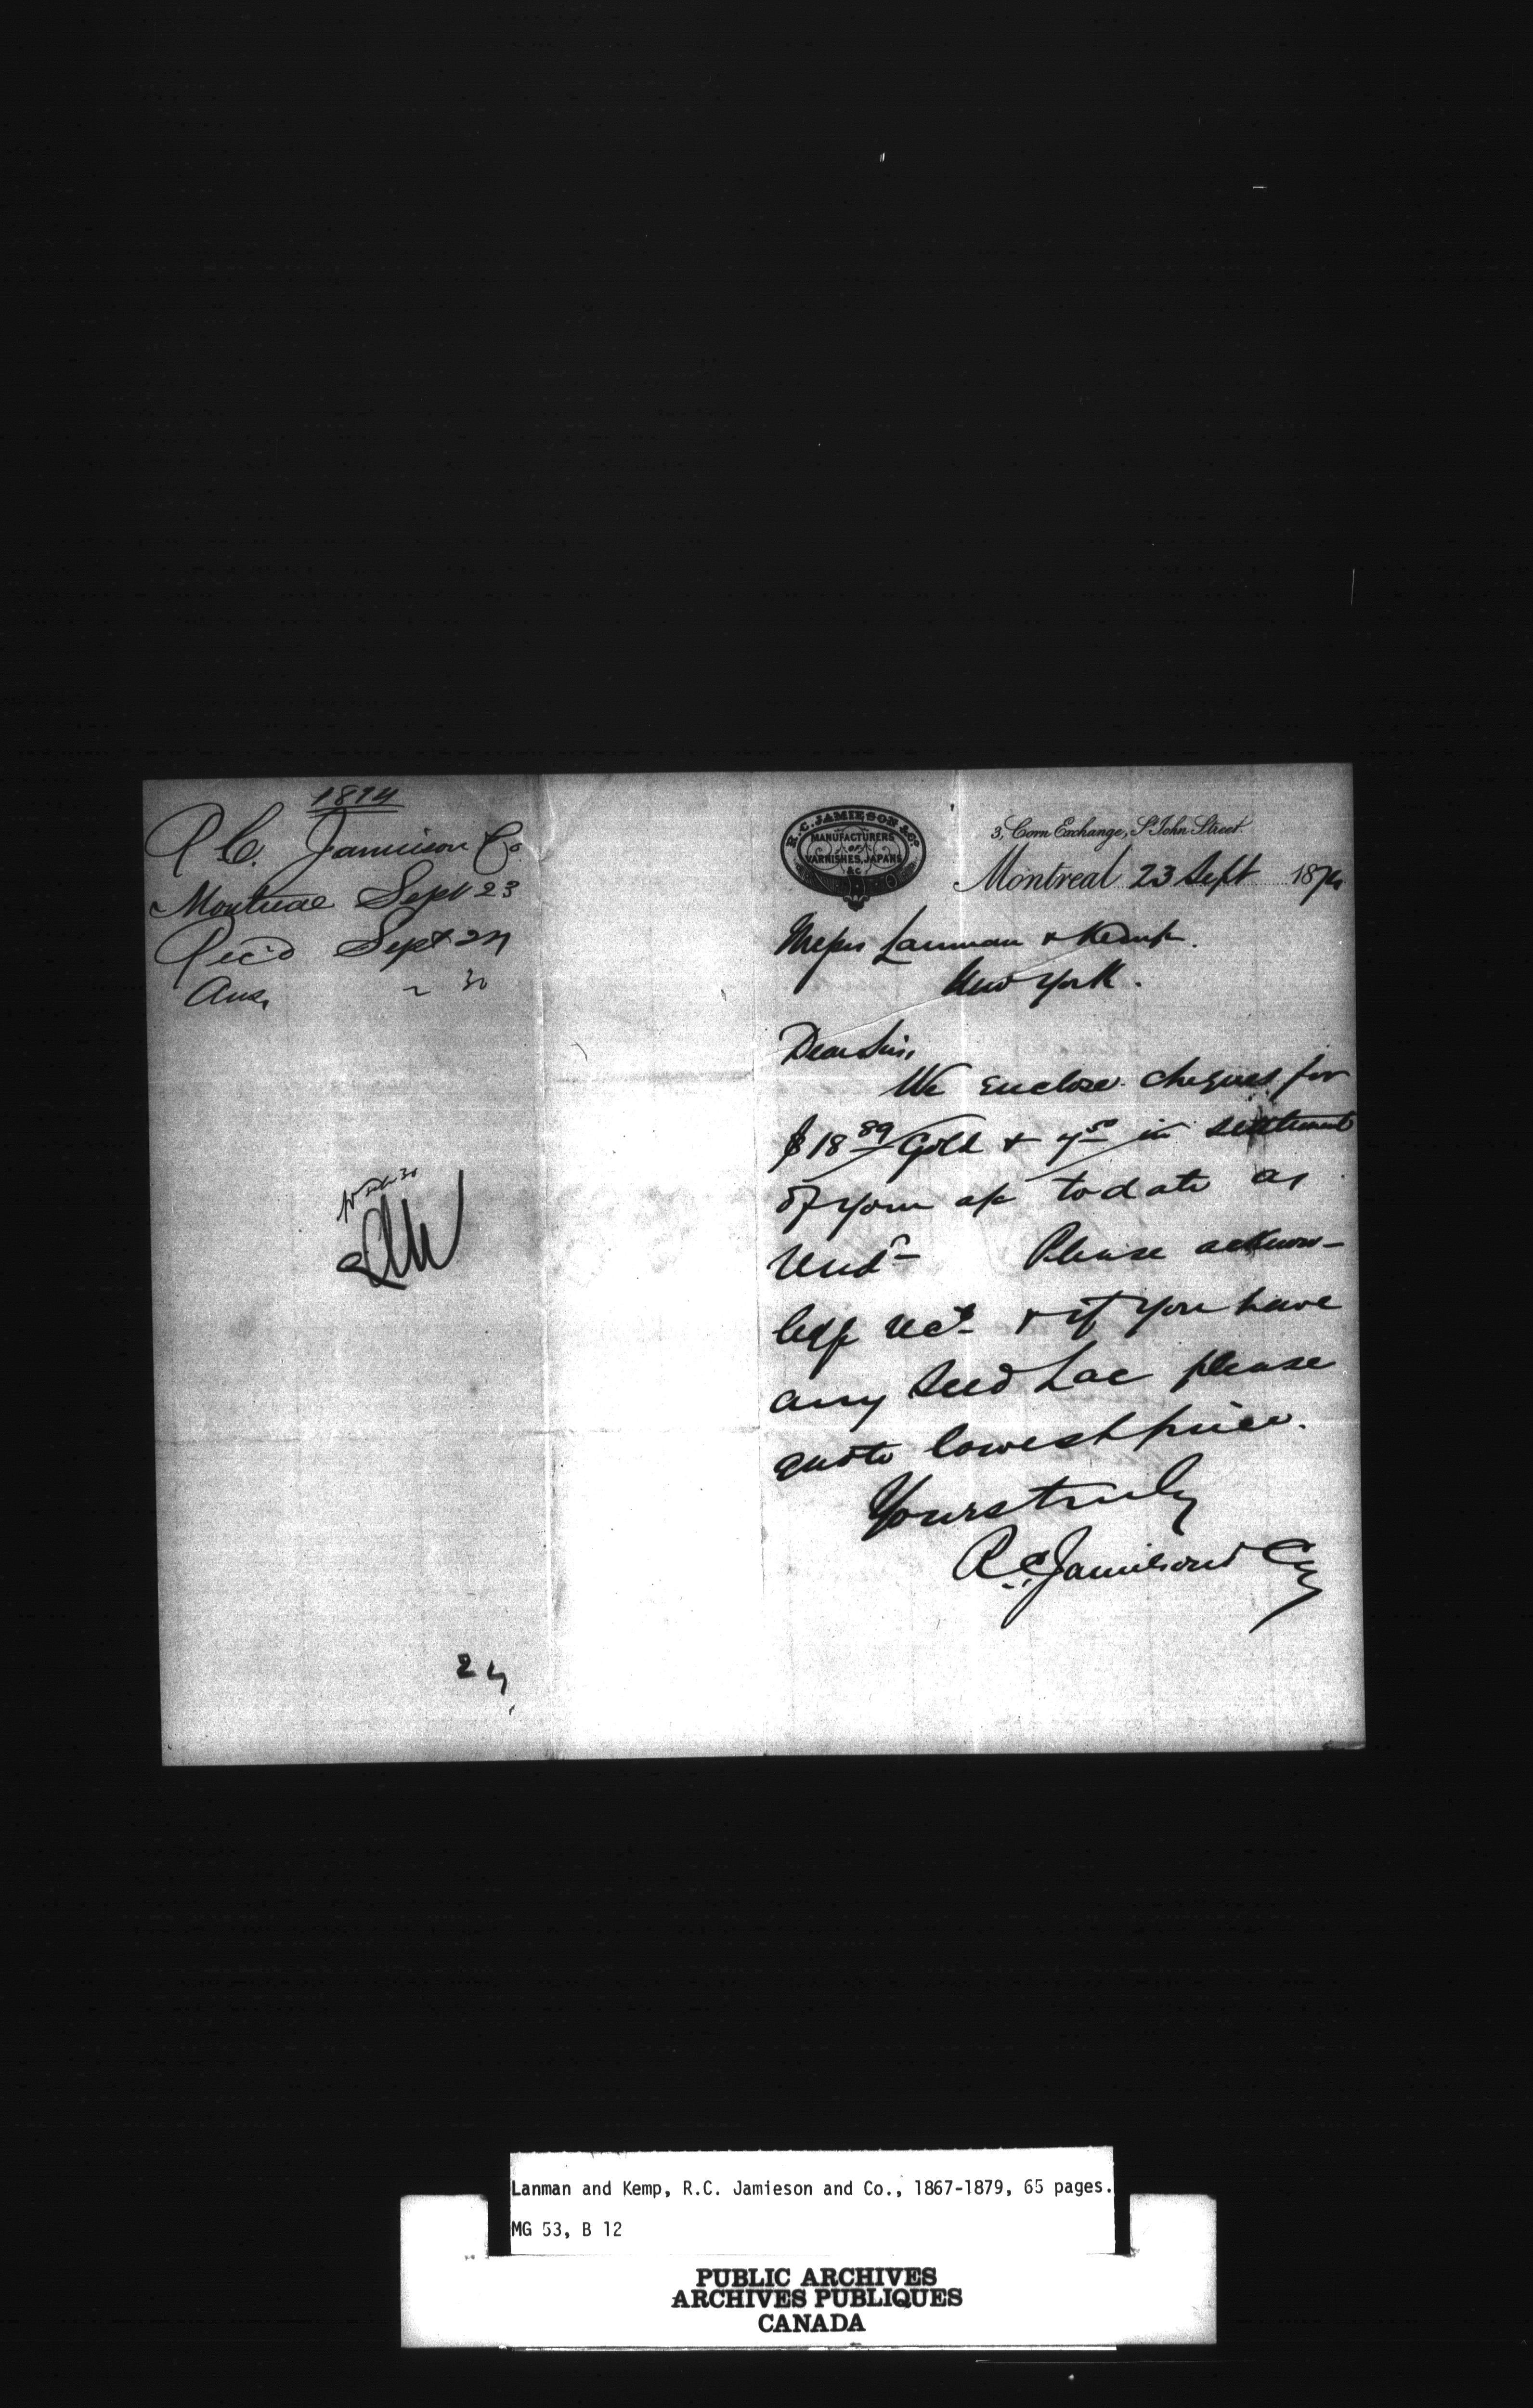 1874
R C. Jamieson Co
Montreal Sept 23
Rec'd Sept 24
Ans, " 30
24
R. C. JAMIESON & Co
MANUFACTURERS
OF
VARNISHES, JAPANS
&C
3, Corn Exchange, St John Street.
Montreal 23 Sept 1874
Messrs Lanman & Kemp.
New York.
Dear Sirs,
We enclose cheques for
$18 89/ Gold & 4 50/ in settlement
of your a/c to date as
Please acknow-
ledge & if you have
any Seed Lac please
quote lowest price.
Yours truly
R. C. Jamieson & Co
Lanman and Kemp, R.C. Jamieson and Co., 1867-1879, 65 pages.
MG 53, B 12
PUBLIC ARCHIVES
ARCHIVES PUBLIQUES
CANADA